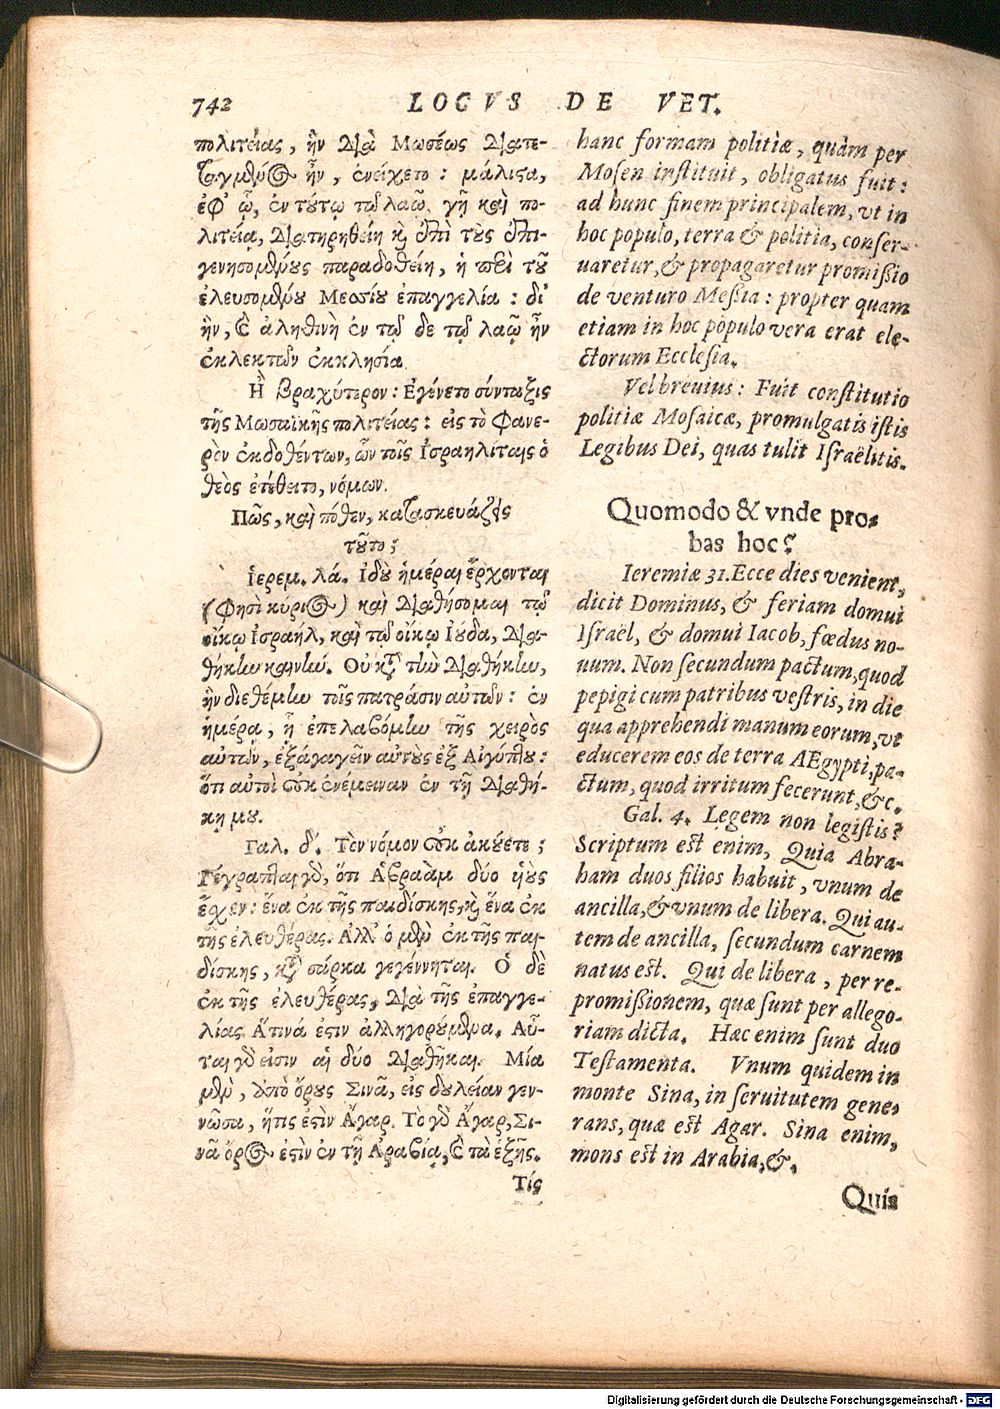 742 LOCVS DE VET.
πολιτείας, ἣν διὰ Μωσέως διατε-
ταγμένος ἦν, ἐνείχετο: μάλιςα,
ἐφ' ᾧ, ἐν τούτῳ τῷ λαῷ, γῇ καὶ πο-
λιτείᾳ, διατηρηθείη κỳ ἐπὶ τοὺς ἐπι-
γενησομένους παραδοθείη, ἡ περὶ τοῦ
ἐλευσομένου Μεσίου ἐπαγγελία: δι'
ἣν, καὶ ἀληθινὴ ἐν τῷ δε τῷ λαῷ ἦν
ἐκλεκτῶν ἐκκλησία.
Ἢ βραχύτερον: Ἐγένετο σύνταξις
τῆς Μωσαϊκῆς πολιτείας: εἰς τὸ φανε-
ρὸν ἐκδοθέντων, ὧν τοῖς Ἰσραηλίταις ὁ
θεὸς ἐτέθειτο, νόμων.
Πῶς, καὶ πόθεν, κατασκευάζεις
τοῦτο;
Ἱερεμ. λά. Ἰδοὺ ἡμέραι ἔρχονται
(φησὶ κύριος) καὶ διαθήσομαι τῷ
οἴκῳ Ἰσραήλ, καὶ τῷ οἴκῳ Ἰούδα, δια-
θήκην καινήν. Οὐ κατὰ τὴν διαθήκην,
ἣν διεθέμην τοῖς πατράσιν αὐτῶν: ἐν
ἡμέρᾳ, ᾗ ἐπελαβόμην τῆς χειρὸς
αὐτῶν, ἐξάγαγεῖν αὐτοὺς ἐξ Αἰγύπτου:
ὅτι αὐτοὶ οὐκ ἐνέμειναν ἐν τῇ διαθή-
κῃ μου.
Γαλ. δ΄. Τὸν νόμον οὐκ ἀκούετε;
Γέγραπται γὰρ, ὅτι Ἀβραὰμ δύο ὑιοὺς
ἔσχεν: ἕνα ἐκ τῆς παιδίσκης, κỳ ἕνα ἐκ
τῆς ἐλευθέρας. Ἀλλ' ὁ μὲν ἐκ τῆς παι-
δίσκης, κατὰ σάρκα γεγέννηται. Ὁ δὲ
ἐκ τῆς ἐλευθέρας, διὰ τῆς ἐπαγγε-
λίας. Ἅτινά ἐςιν ἀλληγορούμενα. Αὗ-
ται γὰρ εἰσιν αἱ δύο διαθῆκαι. Μία
μὲν, ἀπὸ ὄρους Σινᾶ, εἰς δουλείαν γεν-
νῶσα, ἥτις ἐςὶν Ἄγαρ. Τὸ γὰρ Ἄγαρ, Σι-
νᾶ ὄρος ἐςὶν ἐν τῇ Ἀραβίᾳ, καὶ τὰ ἑξῆς.
Τίς
hanc formam politiæ, quàm per
Mosen instituit, obligatus fuit:
ad hunc finem principalem, vt in
hoc populo, terra & politia, conser-
uaretur, & propagaretur promissio
de venturo Messia: propter quam
etiam in hoc populo vera erat ele-
ctorum Ecclesia.
Vel breuius: Fuit constitutio
politiæ Mosaicæ, promulgatis istis
Legibus Dei, quas tulit Israëlitis.
Quomodo & vnde pro-
bas hoc?
Ieremiæ 31. Ecce dies venient,
dicit Dominus, & feriam domui
Israël, & domui Iacob, fœdus no-
uum. Non secundum pactum, quod
pepigi cum patribus vestris, in die
qua apprehendi manum eorum, vt
educerem eos de terra AEgypti, pa-
ctum, quod irritum fecerunt, &c.
Gal. 4. Legem non legistis?
Scriptum est enim, Quia Abra-
ham duos filios habuit, vnum de
ancilla, & vnum de libera. Qui au-
tem de ancilla, secundum carnem
natus est. Qui de libera, per re-
promissionem, quæ sunt per allego-
riam dicta. Hæc enim sunt duo
Testamenta. Vnum quidem in
monte Sina, in seruitutem gene-
rans, quæ est Agar. Sina enim,
mons est in Arabia, &.
Quis
Digitalisierung gefördert durch die Deutsche Forschungsgemeinschaft - DFG